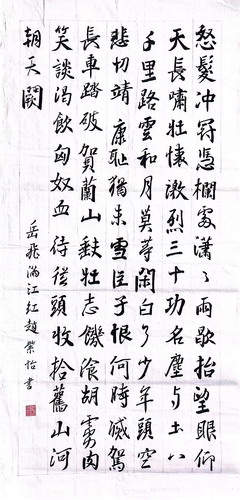 怒髮冲冠憑欄處瀟〻雨歇抬望眼仰
天長嘯壯懷激烈三十功名塵与土八
千里路雲和月莫等閑白了少年頭空
悲切靖康耻猶未雪臣子恨何時滅駕
長車踏破賀蘭山缺壯志饑飡胡虜肉
笑談渴飲匈奴血待從頭收拾舊山河
朝天闕
岳飛滿江紅趙榮怡書